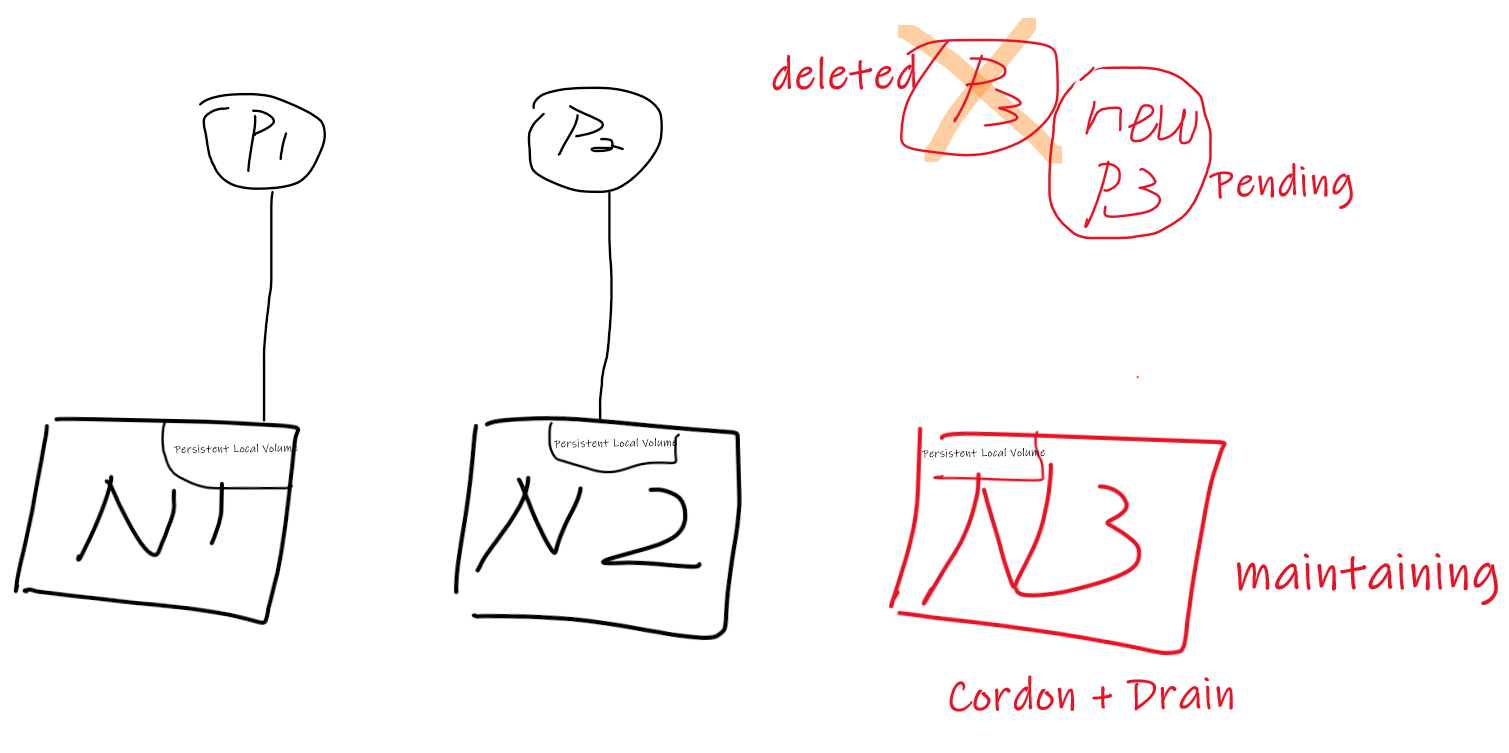 deleted
P3
new
P3
Pending
P1
P2
Persistent Local Volume
N1
Persistent Local Volume
N2
Persistent Local Volume
N3
maintaining
Cordon + Drain